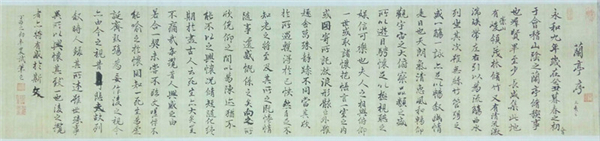 蘭亭序
永和九年歲在癸丑暮春之初會
于會稽山陰之蘭亭脩禊事
也群賢畢至少長咸集此地
有崇山峻領茂林脩竹又有清流激
湍映帶左右引以為流觴曲水
列坐其次雖無絲竹管弦之
盛一觴一詠亦足以暢敘幽情
是日也天朗氣清惠風和暢仰
觀宇宙之大俯察品類之盛
所以遊目騁懷足以極視聽之
娛信可樂也夫人之相與俯仰
一世或取諸懷抱悟言一室之內
或因寄所託放浪形骸之外雖
趣舍萬殊靜躁不同當其欣
於所遇蹔得於己快然自足不
知老之將至及其所之既惓情
隨事遷感慨係之矣向之所
欣俛仰之間以為陳迹猶不
能不以之興懷況脩短隨化終
期於盡古人云死生亦大矣豈
不痛哉每攬昔人興感之由
若合一契未嘗不臨文嗟悼不
能喻之於懷固知一死生為虛
誕齊彭殤為妄作後之視今
亦由今之視昔悲夫故列
敘時人錄其所述雖世殊事
異所以興懷其致一也後之攬
者亦將有感於斯文